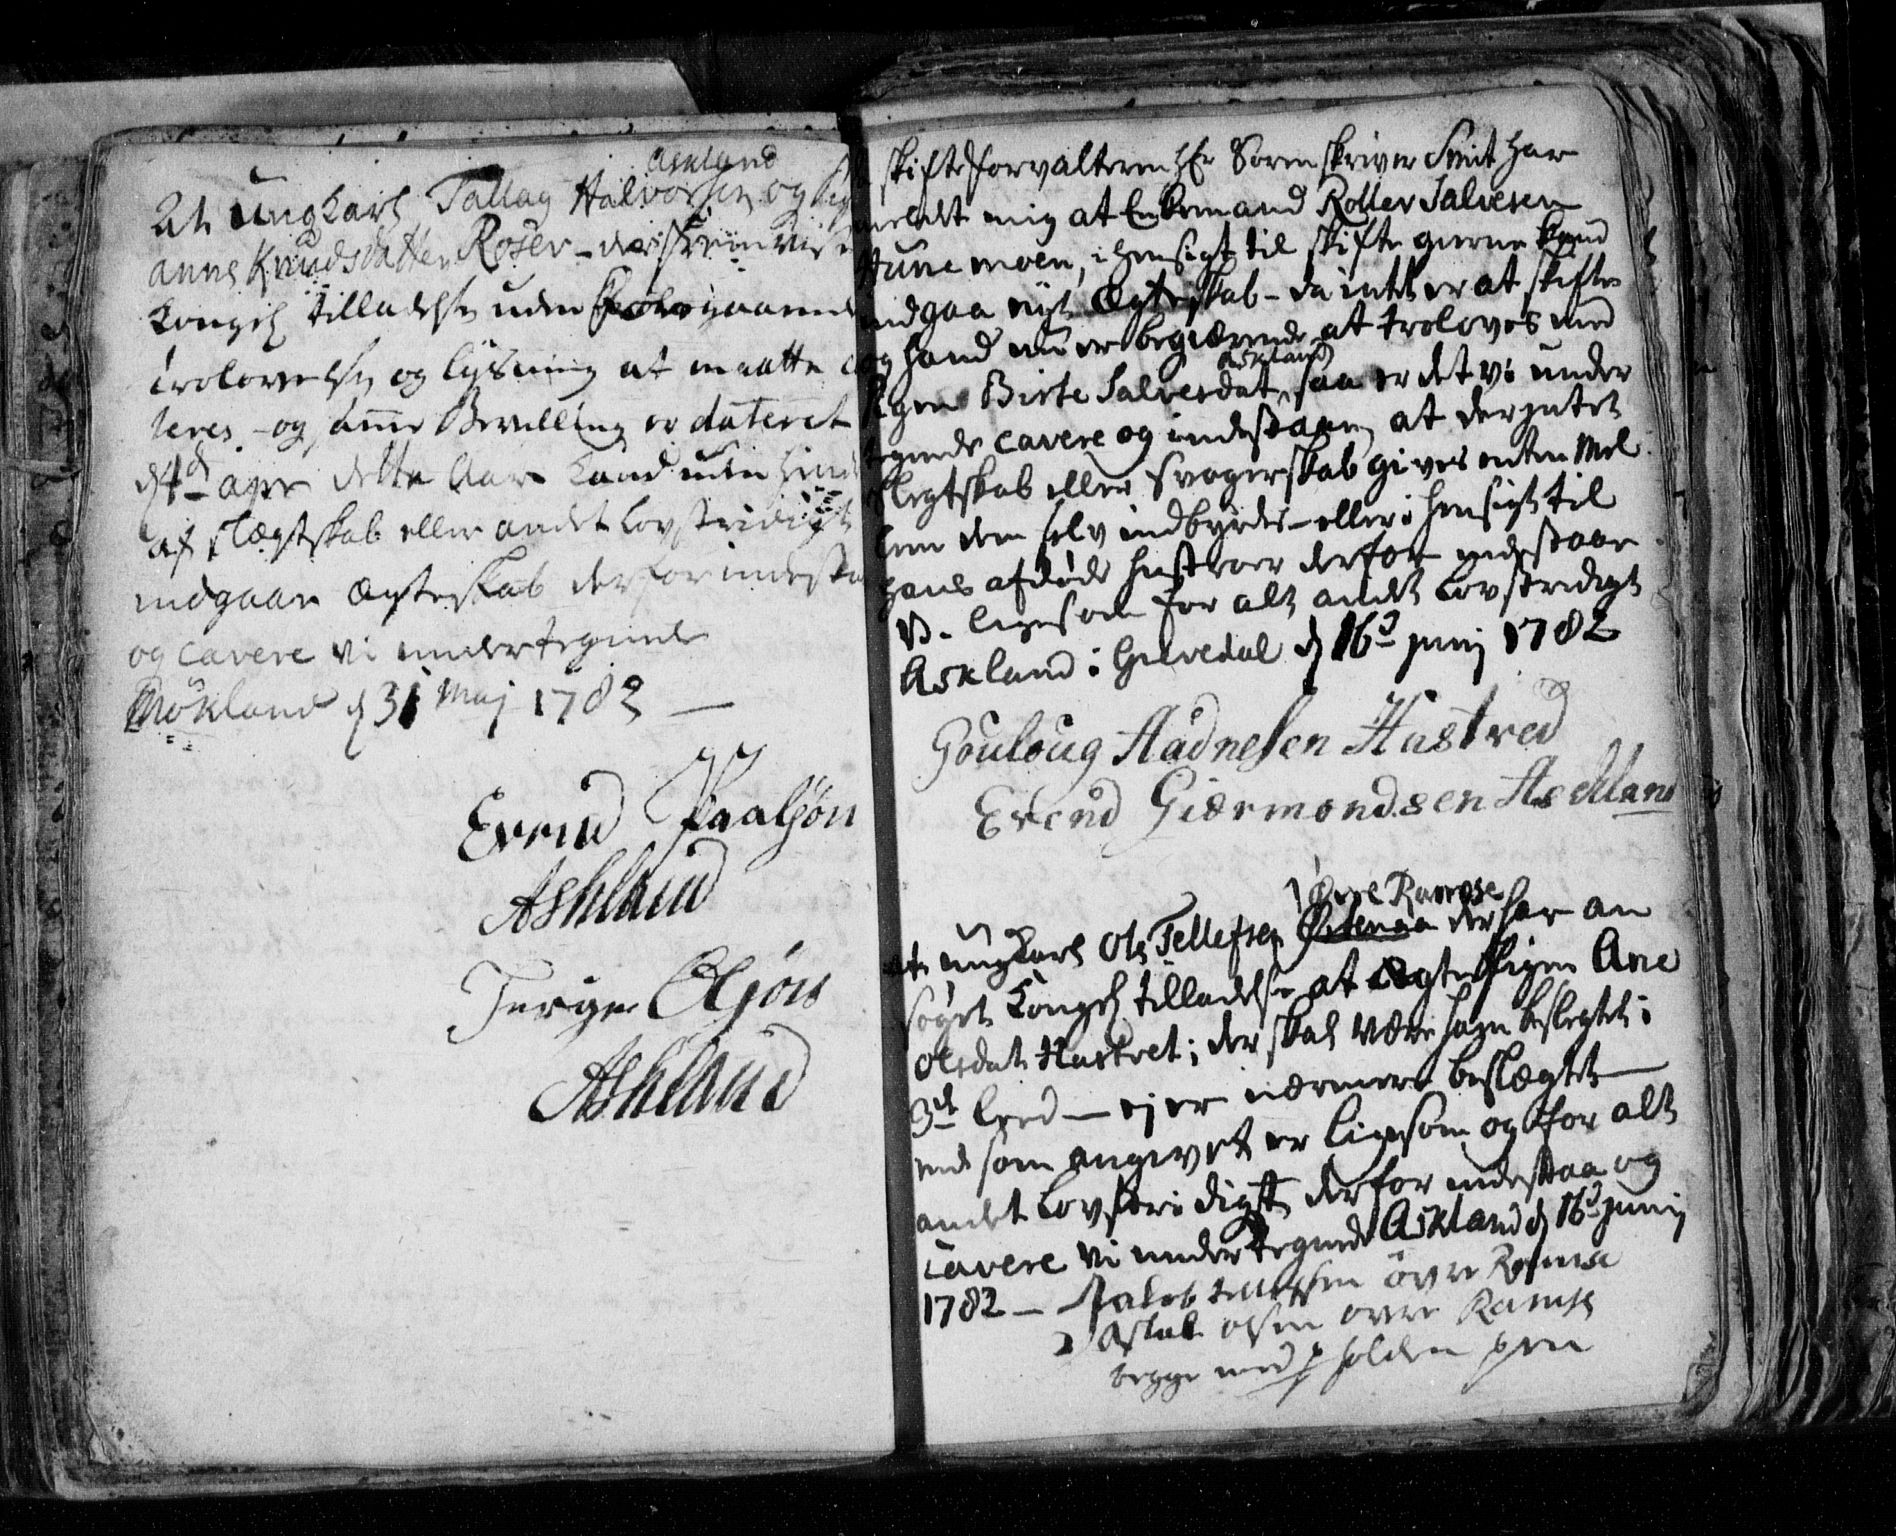 Askland
At Ungkarl Tallag Halvorsen og
anne Knudsdatter Roser - der
Kongel tilladelse uden
trolovelse og lysning at maatte
- og denne Bevilling er dateret
d 4de apr dette Aar kand uden
af slægtskab eller andet lovstridigt
indgaae ægteskab derfor indestaa
og cavere vi undertegnede
Mökland d 31 Maj 1782 -
Evend Paalsøn
Askland
Terge Olsøn
Askland
skifteforvalteren Hr Sorenskriver Smit har
meldt mig at Enkemand Roller Salvesen
Hunemoen, i hensigt til skifte gierne kand
indgaa nyt Ægteskab - da intet er at skifte
og hand nu er begiærende at troloves med
Askland
Pigen Birte Salvesdat, saa er det vi under
tegnede cavere og indestaar, at der intet
slegtskab eller Svogerskab gives enten Mel
lem dem selv indbyrdes - eller i hensigt til
hans afdøde hustroer derfor indestaar
vi - ligesom for alt andet Lovstridigt
Askland i Gilvedal d 16d junij 1782
Gouloug Aadnesen Hastved
Evend Giærmondsen Askland
Øvre Ramse
at ungkarl Ole Tellefsen der har an
søgt Kongel tilladelse at ægte Pigen Ane
Olsdat Hastvet; der skal være hans beslegtet i
3d leed - ej er nærmere beslægtet
end som angivet er ligesom og for alt
andet Lovstridigt derfor indestaa og
cavere vi undertegnede Askland d 16d junij
1782 - Jakob tellefsen övre Ramse
Aslak olsen ovre Ramse
begge med holden pen